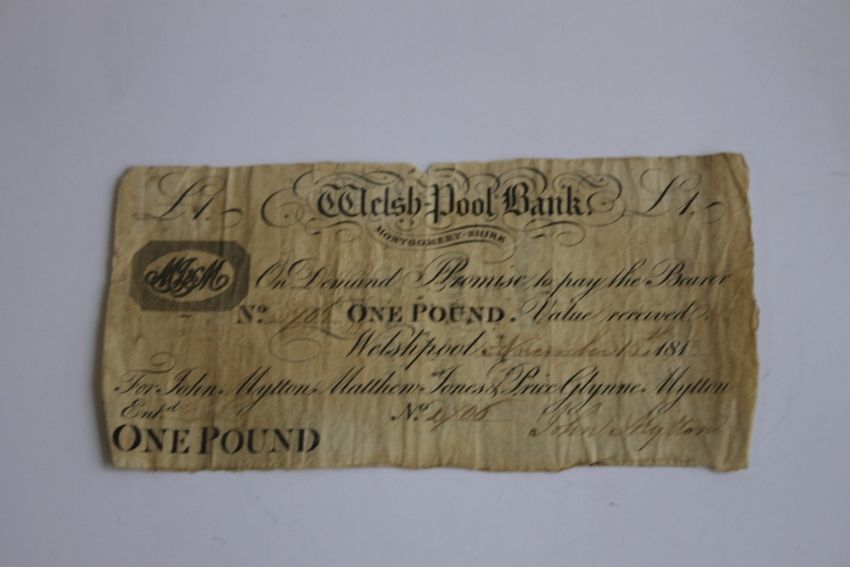 £1. Welsh-Pool Bank. £1.
MONTGOMERY-SHIRE
MJ&M
On Demand I Promise to pay the Bearer
No. ONE POUND. Value received.
Welshpool November 181
For John Mytton, Matthew Jones & Price Glynne Mytton
Entd. No.
John Mytton
ONE POUND